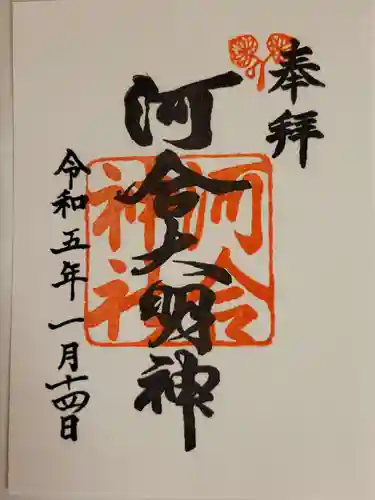 奉拝
河合大明神
河合神社
令和五年一月十四日